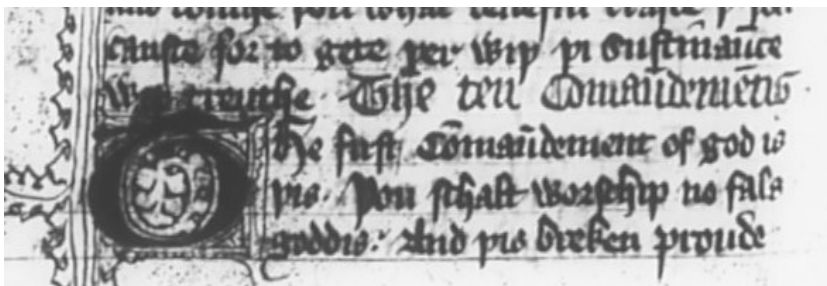 cause for to gete þer wiþ þi sustinaūce
wiþ treuthe. The ten Comaūdemētis
The first Cōmaūdement of god is
þis. Þou schalt worschip no fals
goddis: And þis breken proude